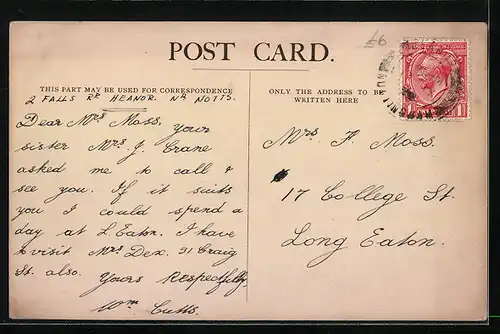 £6
POST CARD.
THIS PART MAY BE USED FOR CORRESPONDENCE
ONLY THE ADDRESS TO BE
WRITTEN HERE
2 FALLS RD HEANOR. Nr NOTTS.
Dear Mrs Moss. Your
sister Mrs. J. Crane
asked me to call &
see you. If it suits
you I could spend a
day at L Eaton. I have
to visit Mrs Dex. 91 Craig
St. also. Yours Respectfully,
Wm Cutts.
Mrs F. Moss.
17 College St.
Long Eaton.